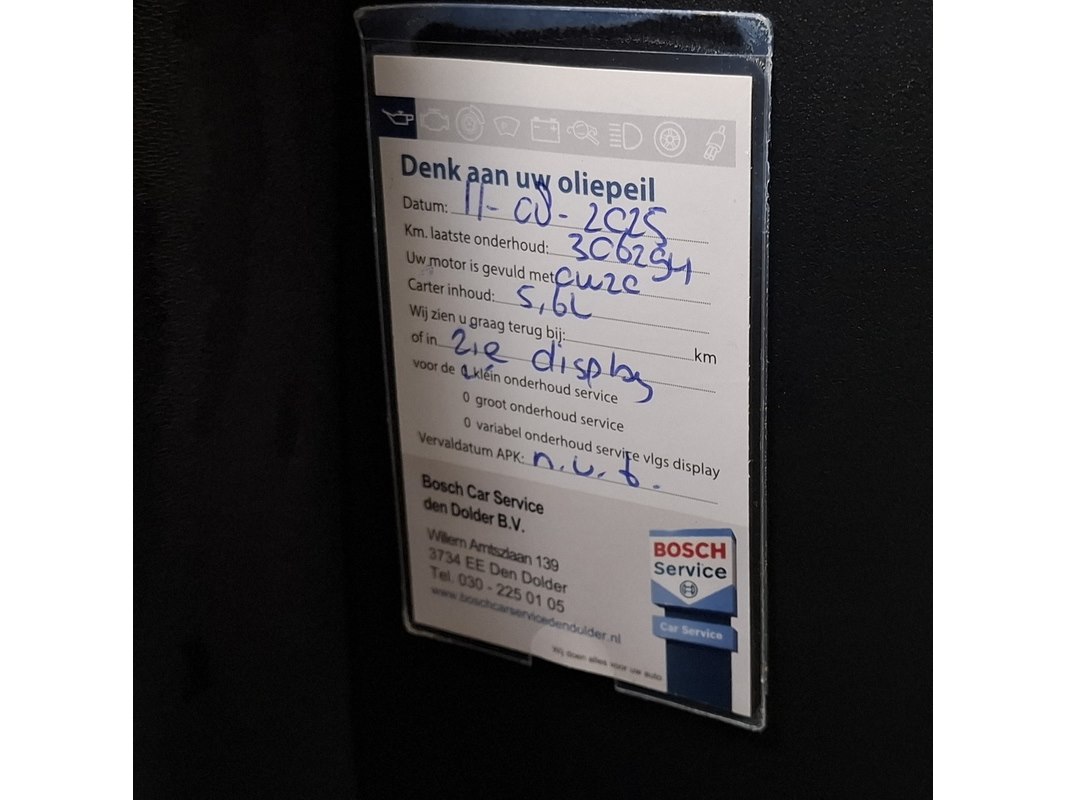 Denk aan uw oliepeil
Datum: 11-08-2025
Km. laatste onderhoud: 306294
Uw motor is gevuld met 0W20
Carter inhoud: 5,6L
Wij zien u graag terug bij: km
of in zie display
voor de 0 klein onderhoud service
0 groot onderhoud service
0 variabel onderhoud service vlgs display
Vervaldatum APK: n.v.t.
Bosch Car Service
den Dolder B.V.
Willem Arntszlaan 139
3734 EE Den Dolder
Tel. 030 - 225 01 05
www.boschcarservicedendolder.nl
BOSCH
Service
Car Service
Wij doen alles voor uw auto